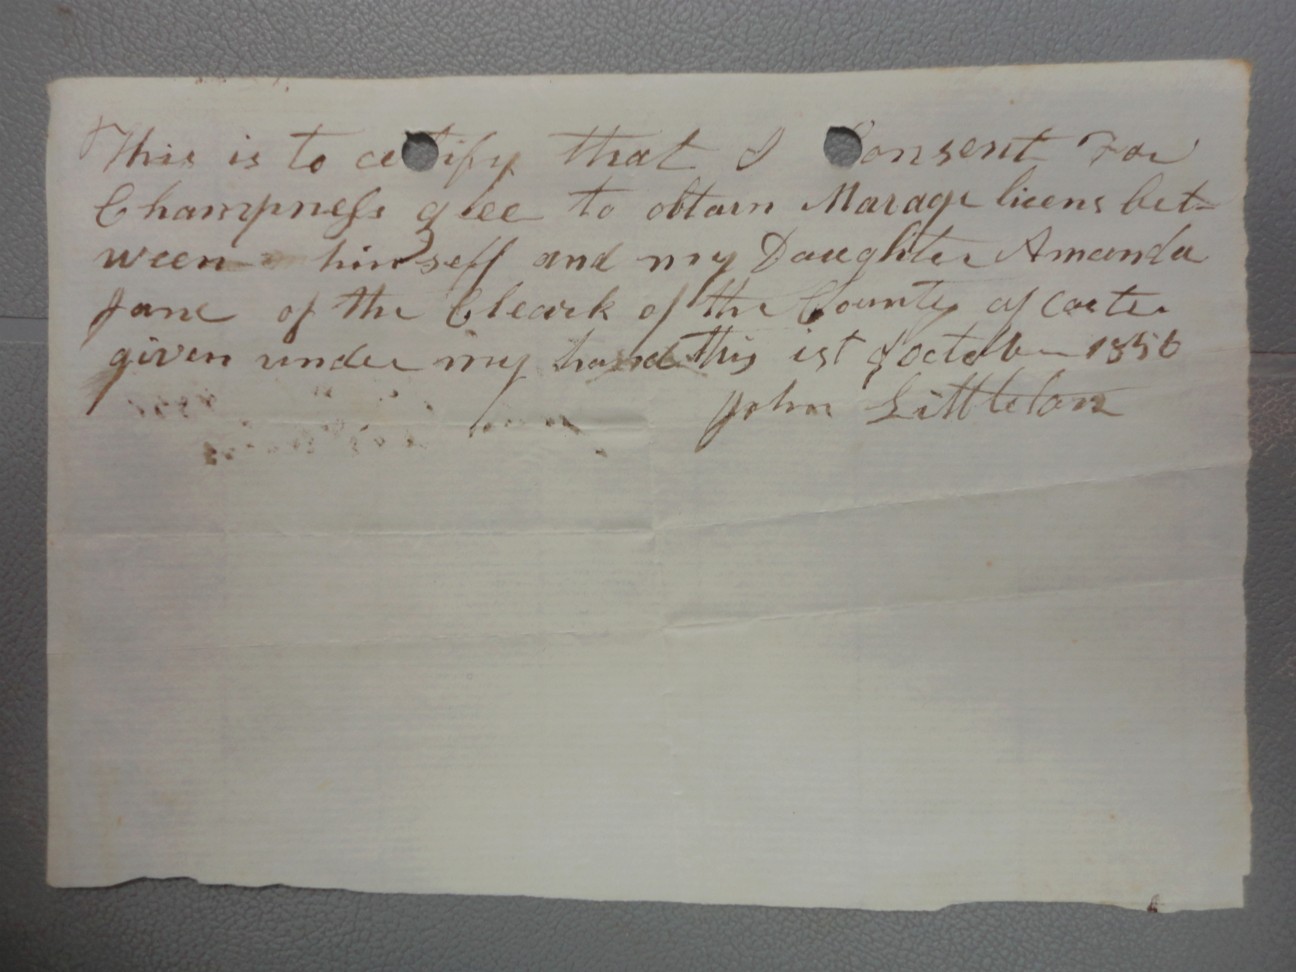 This is to ce tify that I Consent For
Champness glee to obtain Marage licens bet=
ween himself and my Daughter Amanda
Jane of the Cleark of the County of Carter
given under my hand this ist of october 1856
John Littleton